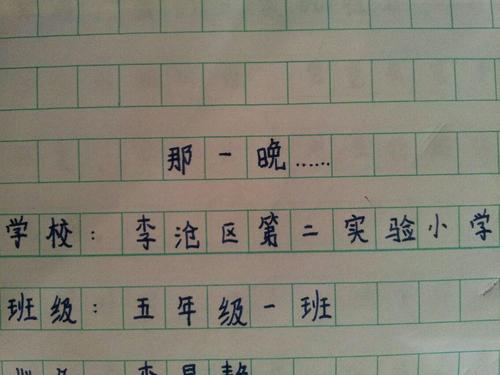 那一晚……
学校：李沧区第二实验小学
班级：五年级一班